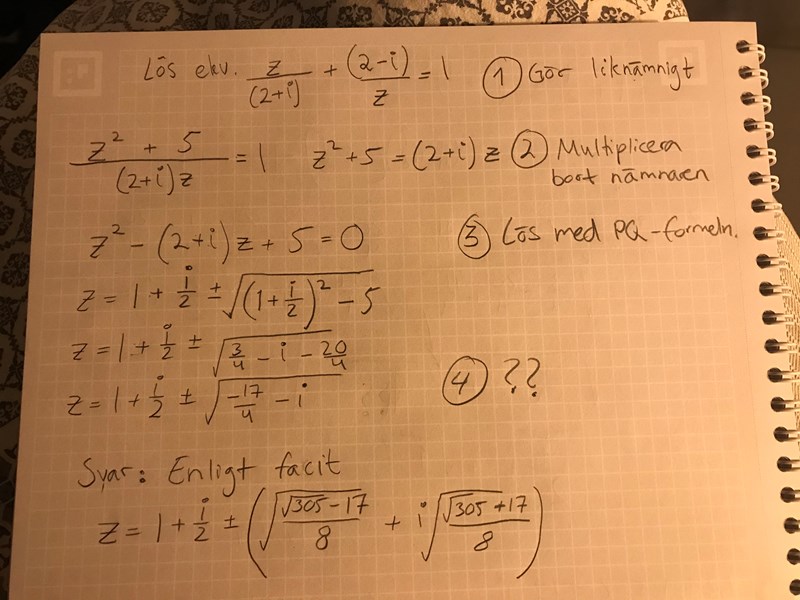 Lös ekv. z/(2+i) + (2-i)/z = 1 ① Gör liknämnigt
(z² + 5)/((2+i)z) = 1 z² + 5 = (2+i) z ② Multiplicera bort nämnaren
z² - (2+i) z + 5 = 0 ③ Lös med PQ-formeln.
z = 1 + i/2 ± √((1 + i/2)² - 5)
z = 1 + i/2 ± √(3/4 - i - 20/4)
z = 1 + i/2 ± √(-17/4 - i) ④ ??
Svar: Enligt facit
z = 1 + i/2 ± (√((√305 - 17)/8) + i√((√305 + 17)/8))